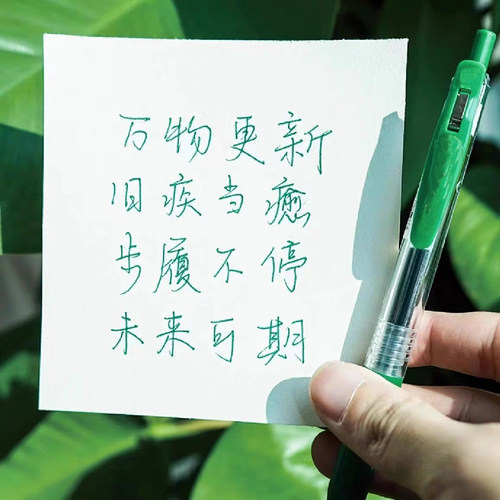 万物更新
旧疾当癒
步履不停
未来可期